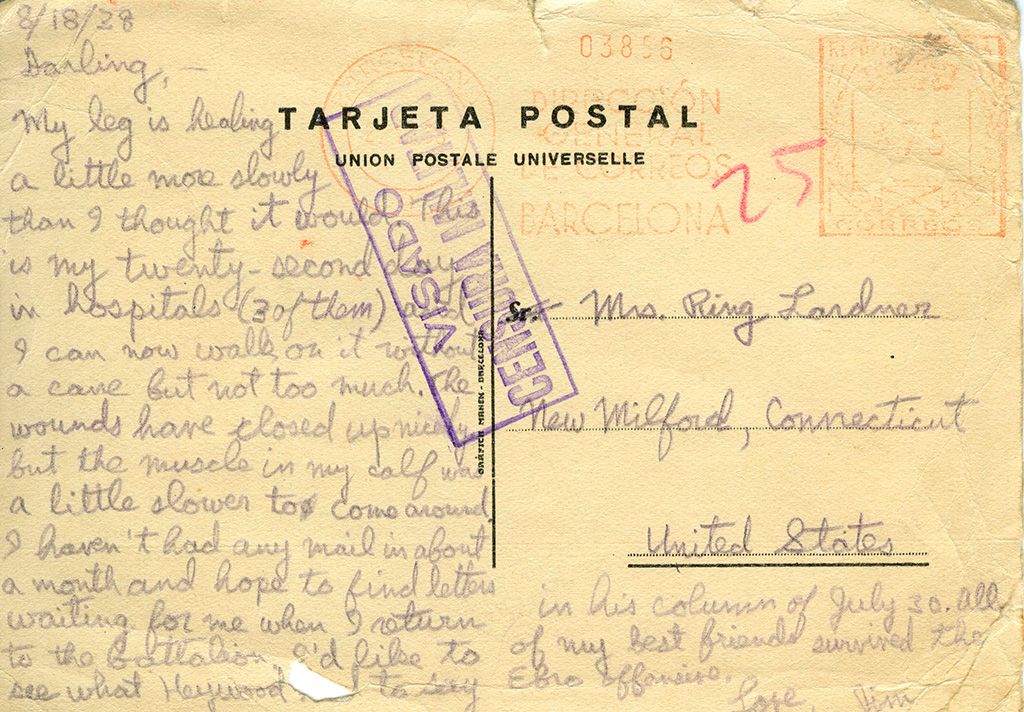 8/18/38
Darling, —
My leg is healing
a little more slowly
than I thought it would. This
is my twenty-second day
in hospitals (3 of them) and
I can now walk on it without
a cane but not too much. The
wounds have closed up nicely
but the muscle in my calf was
a little slower to come around.
I haven't had any mail in about
a month and hope to find letters
waiting for me when I return
to the battalion. I'd like to
see what Heywood to say
in his column of July 30. All
of my best friends survived the
Ebro offensive.
Love, Jim
TARJETA POSTAL
UNION POSTALE UNIVERSELLE
03856
DIRECCIÓN
GENERAL
DE CORREOS
BARCELONA
25
CORREOS
VISADO
CENSURA
GRÁFICA MANEN - BARCELONA
Sr.
Mrs. Ring Lardner
New Milford, Connecticut
United States